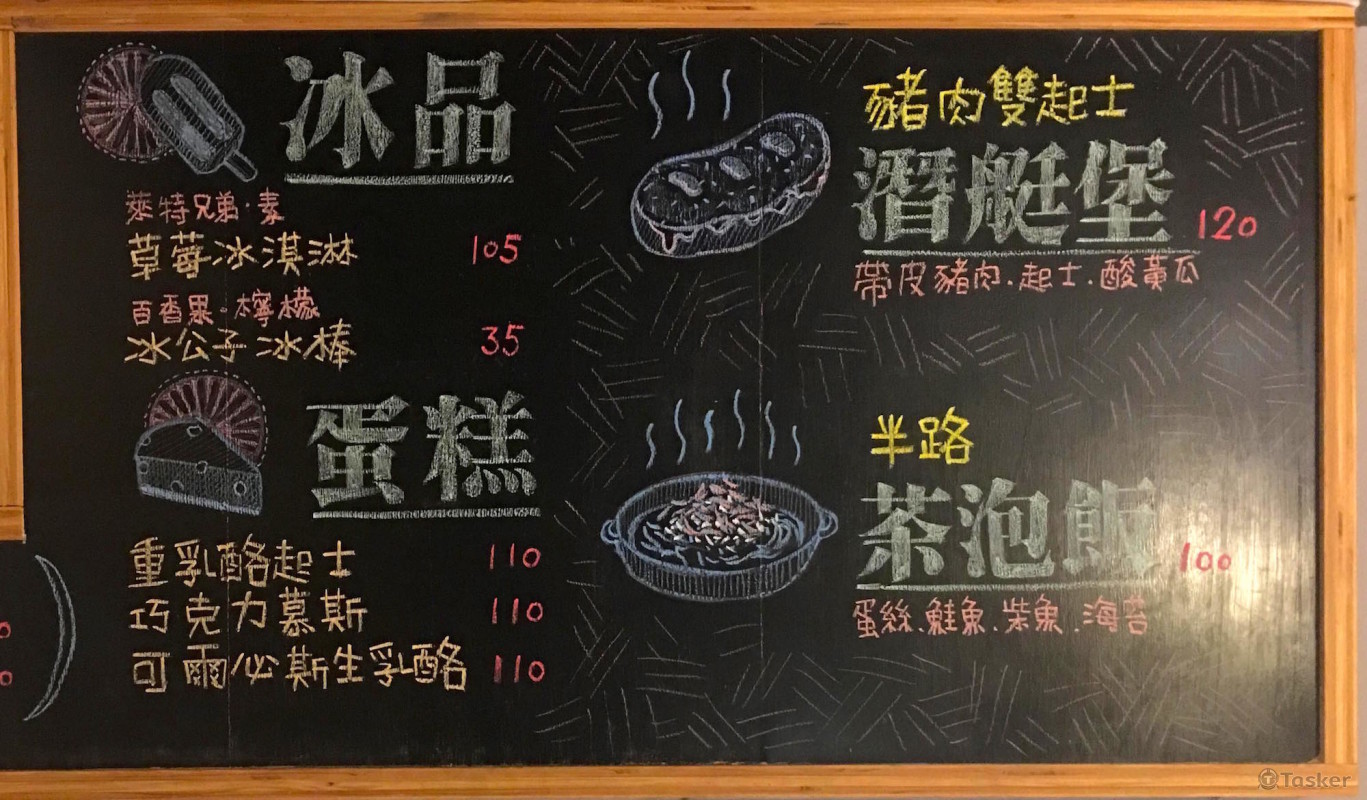 冰品
萊特兄弟·素
草莓冰淇淋 105
百香果·檸檬
冰公子冰棒 35
蛋糕
重乳酪起士 110
巧克力慕斯 110
可爾必斯生乳酪 110
豬肉雙起士
潛艇堡 120
帶皮豬肉.起士.酸黃瓜
半路
茶泡飯 100
蛋絲.鮭魚.柴魚.海苔
Tasker